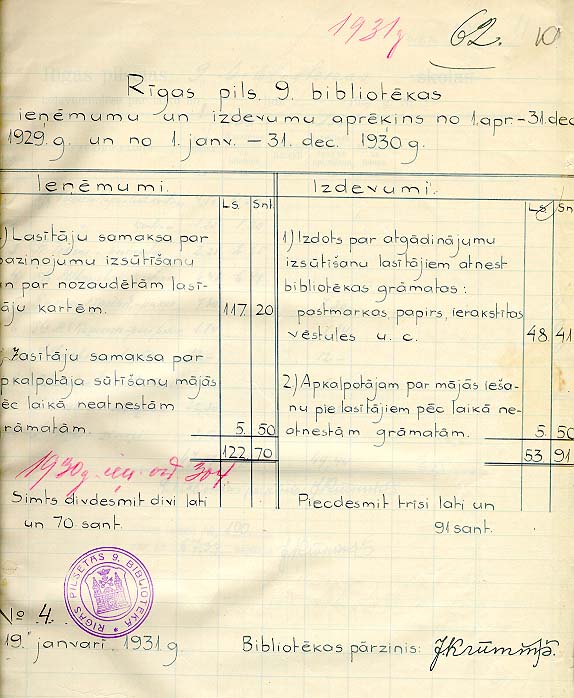 1931 g
62.
10
Rīgas pils. 9. bibliotēkas
ieņēmumu un izdevumu aprēķins no 1.apr-31.dec
1929.g. un no 1.janv. – 31. dec. 1930 g.
Ieņēmumi.
Ls. Snt.
) Lasītāju samaksa par
paziņojumu izsūtīšanu
un par nozaudētām lasī-
tāju kartēm. 117 20
) Lasītāju samaksa par
apkalpotāja sūtīšanu mājās
pēc laikā neatnestām
grāmatām. 5. 50
122 70
1930 g.
Simts divdesmit divi lati
un 70 sant.
Izdevumi.
Ls. Sn
1) Izdots par atgādinājumu
izsūtīšanu lasītājiem atnest
bibliotēkas grāmatas:
pastmarkas, papirs, ierakstītas
vēstules u. c. 48. 41
2) Apkalpotājam par mājās ieša-
nu pie lasītājiem pēc laikā ne-
atnestām grāmatām. 5. 50
53. 91
Piecdesmit trīsi lati un
91 sant.
RĪGAS PILSĒTAS 9. BIBLIOTĒKA
No 4.
19. janvarī, 1931.g. Bibliotēkas pārzinis: J.Krūmiņš.